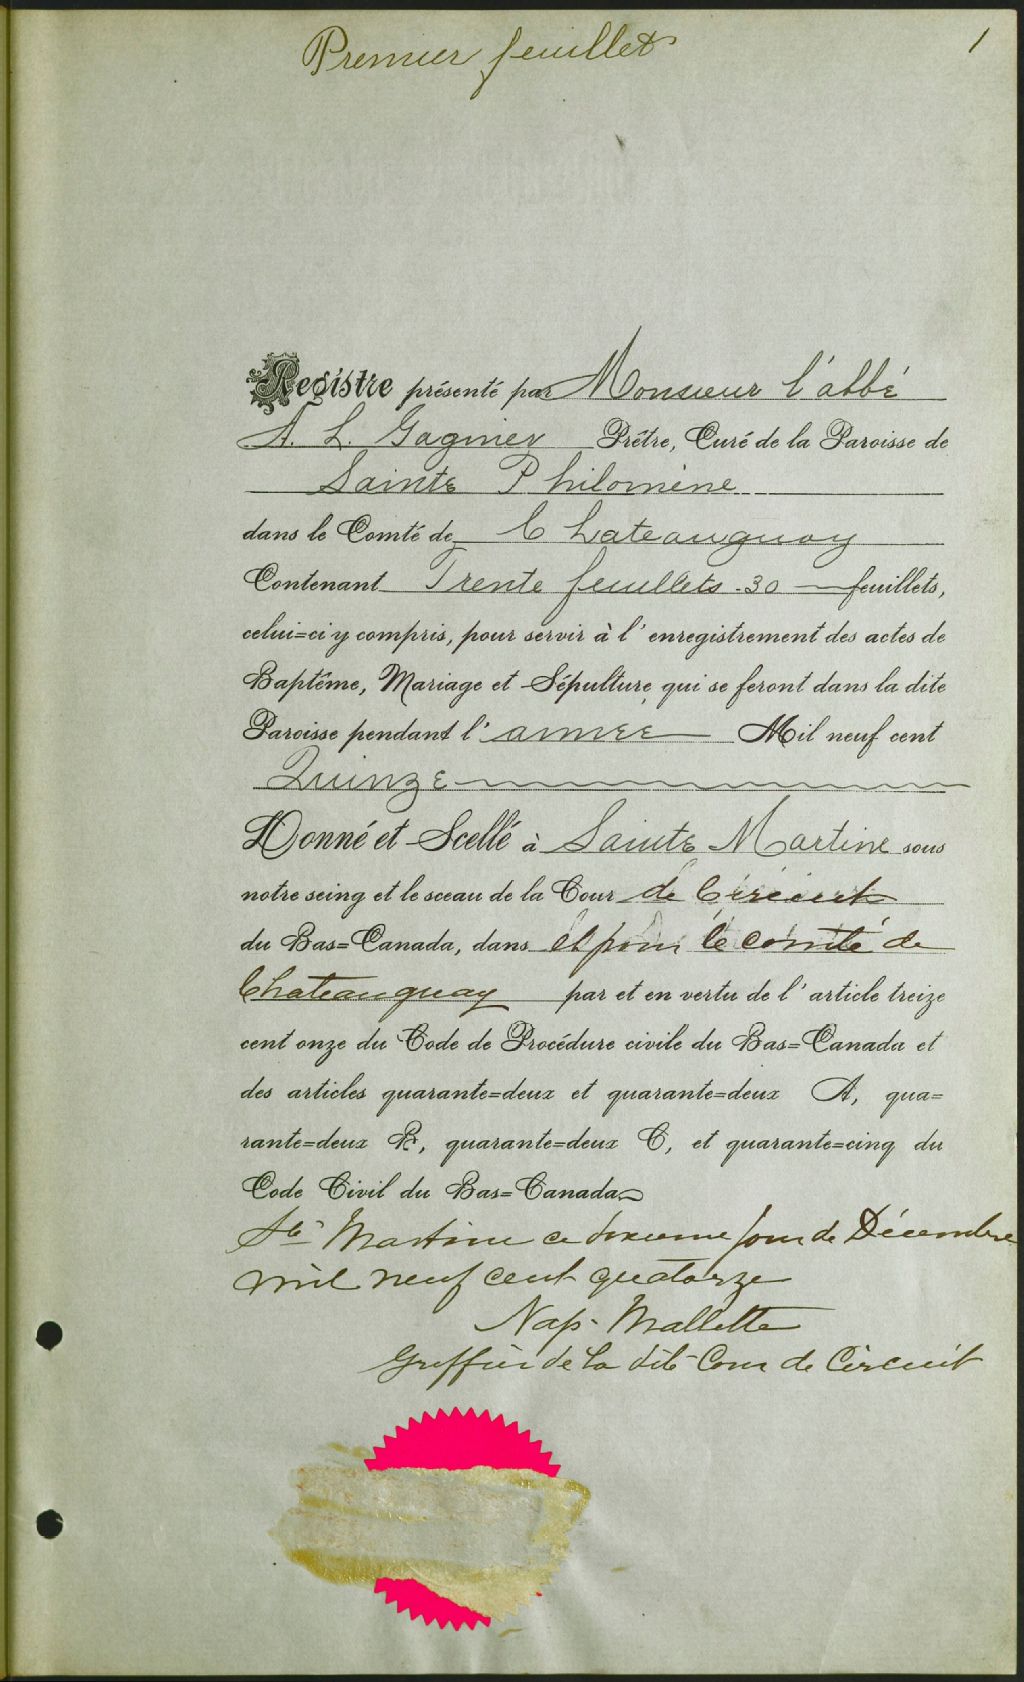 Premier feuillet
1
Registre présenté par Monsieur l'abbé
A. L. Gagnier Prêtre, Curé de la Paroisse de
Sainte Philomène
dans le Comté de Chateauguay
Contenant Trente feuillets - 30 feuillets,
celui=ci y compris, pour servir à l'enregistrement des actes de
Baptême, Mariage et Sépulture, qui se feront dans la dite
Paroisse pendant l'année Mil neuf cent
Quinze
Donné et Scellé à Sainte Martine sous
notre seing et le sceau de la Cour de Circuit
du Bas=Canada, dans et pour le comté de
Chateauguay par et en vertu de l'article treize
cent onze du Code de Procédure civile du Bas=Canada et
des articles quarante=deux et quarante=deux A, qua=
rante=deux B, quarante=deux C, et quarante=cinq du
Code Civil du Bas=Canada
Ste Martine ce jour de Décembre
mil neuf cent quatorze
Nap. Mallette
Greffier de la dite Cour de Circuit